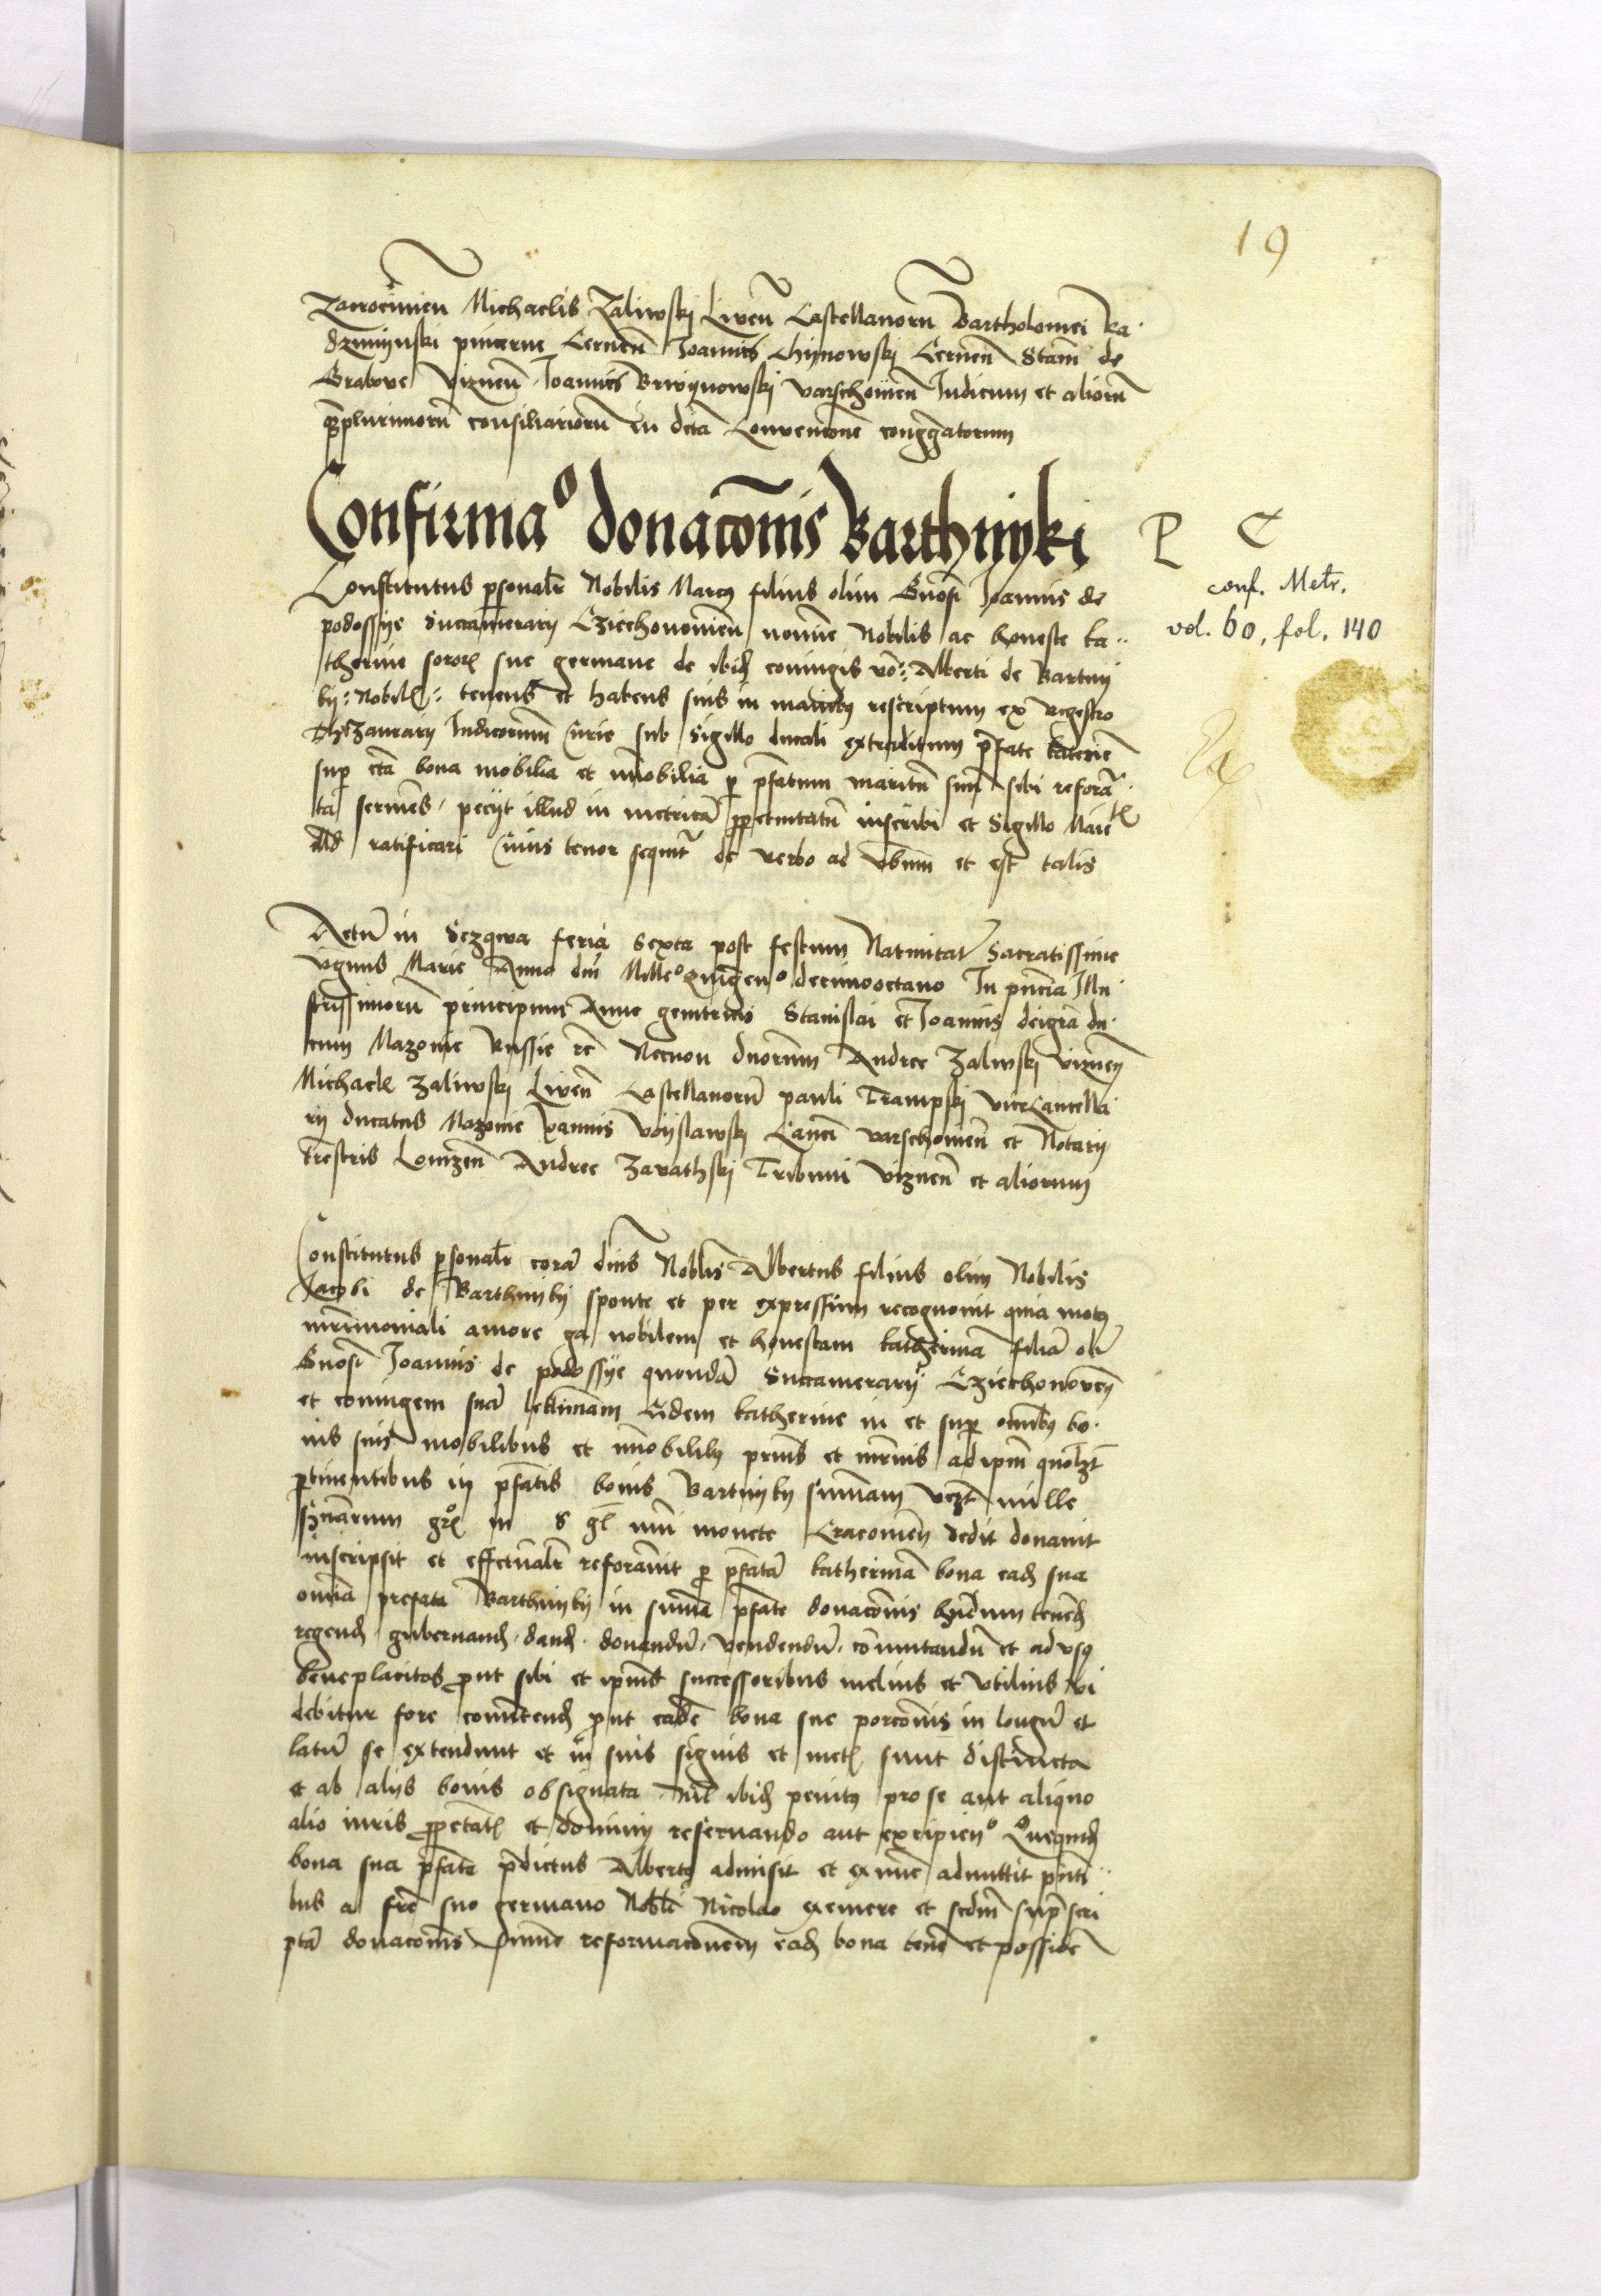 19
Zacrocimien Michaelis Zaliwski Liven Castellanorū Bartholomei Ra
dzimynski pincerne Cernen̄ Joannis Chynowski Cernen̄ Stani de
Grabove Viznen̄ Joannis Brwynowski varschovien̄ Judicum et aliorū
q̄plurimorū consiliariorū in dictā Convencōne congregatorum
Confirmaᵒ donacōnis Barthnyki
P C
conf. Metr.
vol. 60, fol. 140
Constitutus p̄sonalr̄ Nobilis Marcꝰ filius olim Gnosi Joannis de
podossye Succamerarii Cziechonovien̄ nomine Nobilis ac honeste ka
therine sororis sue germane de ibid coniugis vō Alberti de Bartny
ky nobilis tenens et habens suis in manibꝰ rescriptum ex regestro
Thezaurarii Judiciorum Curie sub sigillo ducali extraditum p̄fate katerine
sup̄ cta bona mobilia et īmobilia p̄ p̄fatum maritū suū sibi reforā
ta petiit illud in metricā p̄petuitatū inscribi et Sigillo Maie
ratificari Cuius tenor sequit̄ de verbo ad vbum et est talis
Actū in Sczqwa feria sexta post festum Natiuitat̄ Sacratissime
virginis Marie Anno dn̄i Mill̄o quingenᵒ decimooctavo In pn̄cia Illu
strissimorū principum Anne genitricis Stanislai et Joannis deigrā du
cum Mazovie Russie ec̄ Necnon dnorum Andree Zaliwski vizn̄en
Michaelis Zaliwski Liven̄ Castellanorū pauli Trampski vicecancella
rii ducatus Mazovie Joannis Woyslawski Canci varschovien̄ et Notarii
trēstris Lomzen̄ Andree Zavathski Tribuni viznen̄ et aliorum
Constitutus p̄sonalr̄ corā dnīs Noblis Albertus filius olim Nobilis
Jacobi de Barthnyky sponte et per expressum recognovit quia motꝰ
mr̄imoniali amore ga nobilem et honestam katherinā filiā olī
Gnosi Joannis de podossye quondā Succamerarii Cziechonoven̄
et coniugem suā lektimam Eidem katherine in et sup̄ omībꝰ bo
nis suis mobilibus et īmobilibꝰ pr̄nis et mr̄nis ad ipm̄ quolzt
ptinentibus in p̄fatis bonis Bartnyky summam vczt mille
in s gl̄ moncte Cracovien̄ dedit donavit
inscripsit et effectualr̄ reforavit p̄ p̄fatā katherinā bona eaḋ sua
omīa prefata Barthnyky in summa p̄fate donacōnis hnd̄um tenend
regend gubernand dand donandū vendendū cōmutandū et ad vsꝰ
beneplacitos prout sibi et ipius successoribus melius et vtilius vi
debitur fore prout eadē bona sue porcōnis in longū et
latū se extendunt et in suis signis et metis sunt distincta
et ab aliis bonis obsignata nil̄ ibid penitꝰ pro se aut aliquo
alio iuris p̄prietatis et dominii reservando aut excipienᵒ
bona sua p̄fata p̄dictus Albertꝰ admisit et admittit
bus a fr̄e suo germano Nobili Nicolao exemere et scdm̄ sup̄scri
ptā donacōnis sum̄e reformacōnem eaḋ bona tenē et possidē